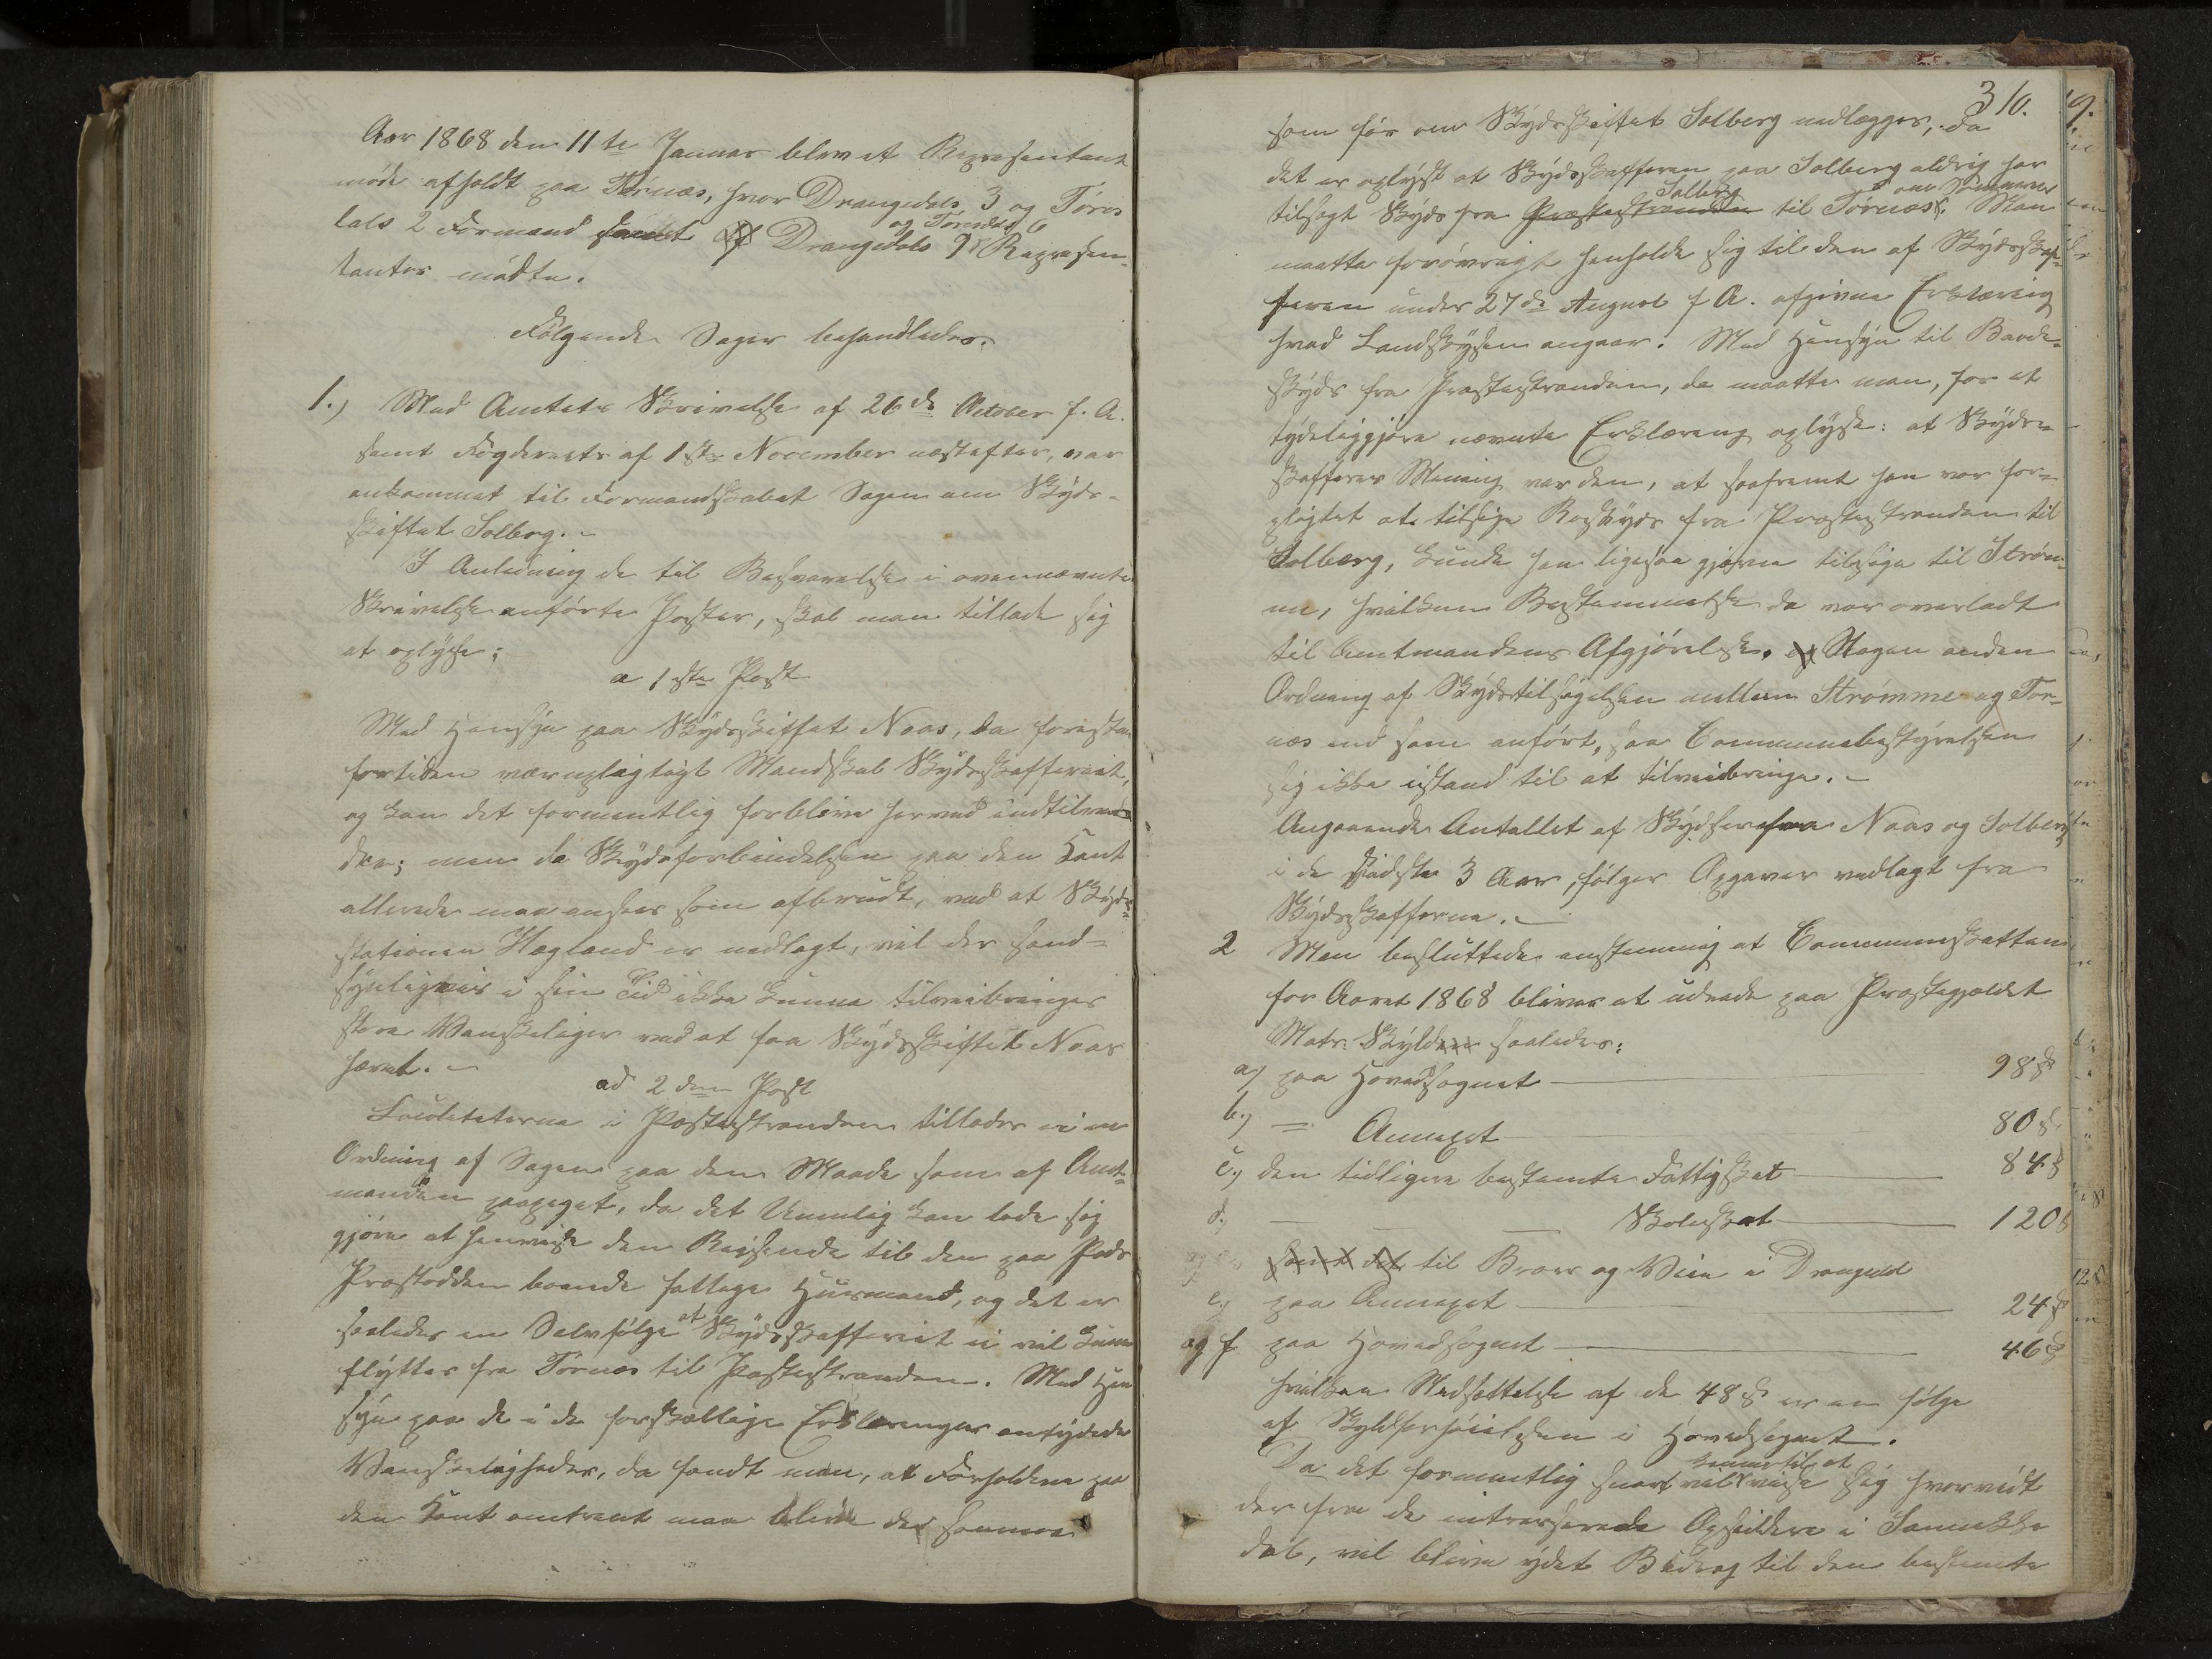 Aar 1868 den 11te Januar blev et Repræsentant
møde afholdt paa Tørnæs, hvor Drangedals 3 og Tøris
dals 2 Formænd samt af Drangedals 9 og Tørisdals 6 Repræsen-
tanter mødte.
Følgende Sager behandledes.
1.) Med Amtets Skrivelse af 26de October f. A.
samt Fogderiets af 1ste November næstefter, var
ankommet til Formandskabet Sagen om Skyds-
skiftet Solberg. -
I Anledning de til Besvarelse i ovennævnte
Skrivelse anførte Poster, skal man tillade sig
at oplyse;
a 1ste Post
Med Hensyn paa Skydsskiftet Naas, da forestaar
fortiden værnepligtigt Mandskab Skydsskafferiet,
og kan det formentlig forblive herved indtilvi-
dere; men da Skydsforbindelsen paa den Kant
allerede maa ansees som afbrudt, ved at Skyds-
stationen Hægland er nedlagt, vil der sand-
synligviis i sin Tid ikke kunne tilveibringes
store Vanskeligheder ved at faa Skydsskiftet Naas
hævet. -
ad 2den Post
Localiteterne i Præstestranden tillader ei en
Ordning af Sagen paa den Maade som af Amt-
manden paapeget, da det Umulig kan lade sig
gjøre at henvise den Reisende til den paa
Præstodden boende fattige Huusmand, og det er
saaledes en Selvfølge at Skydsskafferiet ei vil kunne
flyttes fra Tørnæs til Præstestranden. Med Hen
syn paa de i de forskjellige Erklæringer antydede
Vanskeligheder, da fandt man, at Forholdene paa
den Kant omtrent maa blive det samme
310.
som før om Skydsskiftet Solberg nedlægges, da
det er oplyst at Skydsskafferen paa Solberg aldrig har
tilsagt Skyds fra Præstestranden Solberg til Tørnæs om Sommeren. Man
maatte forøvrigt henholde sig til den af Skydsskaf-
feren under 27de August f A. afgivne Erklæring
hvad Landskydsen angaar. Med Hensyn til Baads-
skyds fra Præstestranden, da maatte man, for at
tydeliggjøre nævnte Erklæring oplyse: at Skyds-
skafferens Mening var den, at saafremt han var for-
pligtet at tilsige Roskyds fra Præstestranden til
Solberg, kunde han ligesaa gjerne tilsige til Strøm-
me, hvilken Bestemmelse da var overladt
til Amtmandens Afgjørelse. og Nogen anden
Ordning af Skydstilsigelsen mellem Strømme og Tør-
næs end som anført, saa Communebestyrelsen
sig ikke istand til at tilveibringe. -
Angaaende Antallet af Skydser fra Naas og Solberg
i de sidste 3 Aar, følger Opgaver vedlagt fra
Skydsskafferne. -
2 Man besluttede enstemmig at Communeskatten
for Aaret 1868 bliver at udrede paa Præstegjeldet
Matr: Skylden saaledes:
a) paa Hovedsognet 98 ß
b.) = Annexet 80 ß
c.) den tidligere bestemte Fattigskat 84 ß
d. — — — Skoleskat 120 ß
og samt det til Broer og Veie i Drangedal
e.) paa Annexet 24 ß
og f paa Hovedsognet 46 ß
hvilken Nedsættelse af de 48 ß er en følge
af Skyldforhøielsen i Hovedsognet.
Da det formentlig snart vil komme til at vise sig hvorvidt
der fra de interesserede Opsiddere i Sannikke
dal, vil blive ydet Bidrag til den bestemte